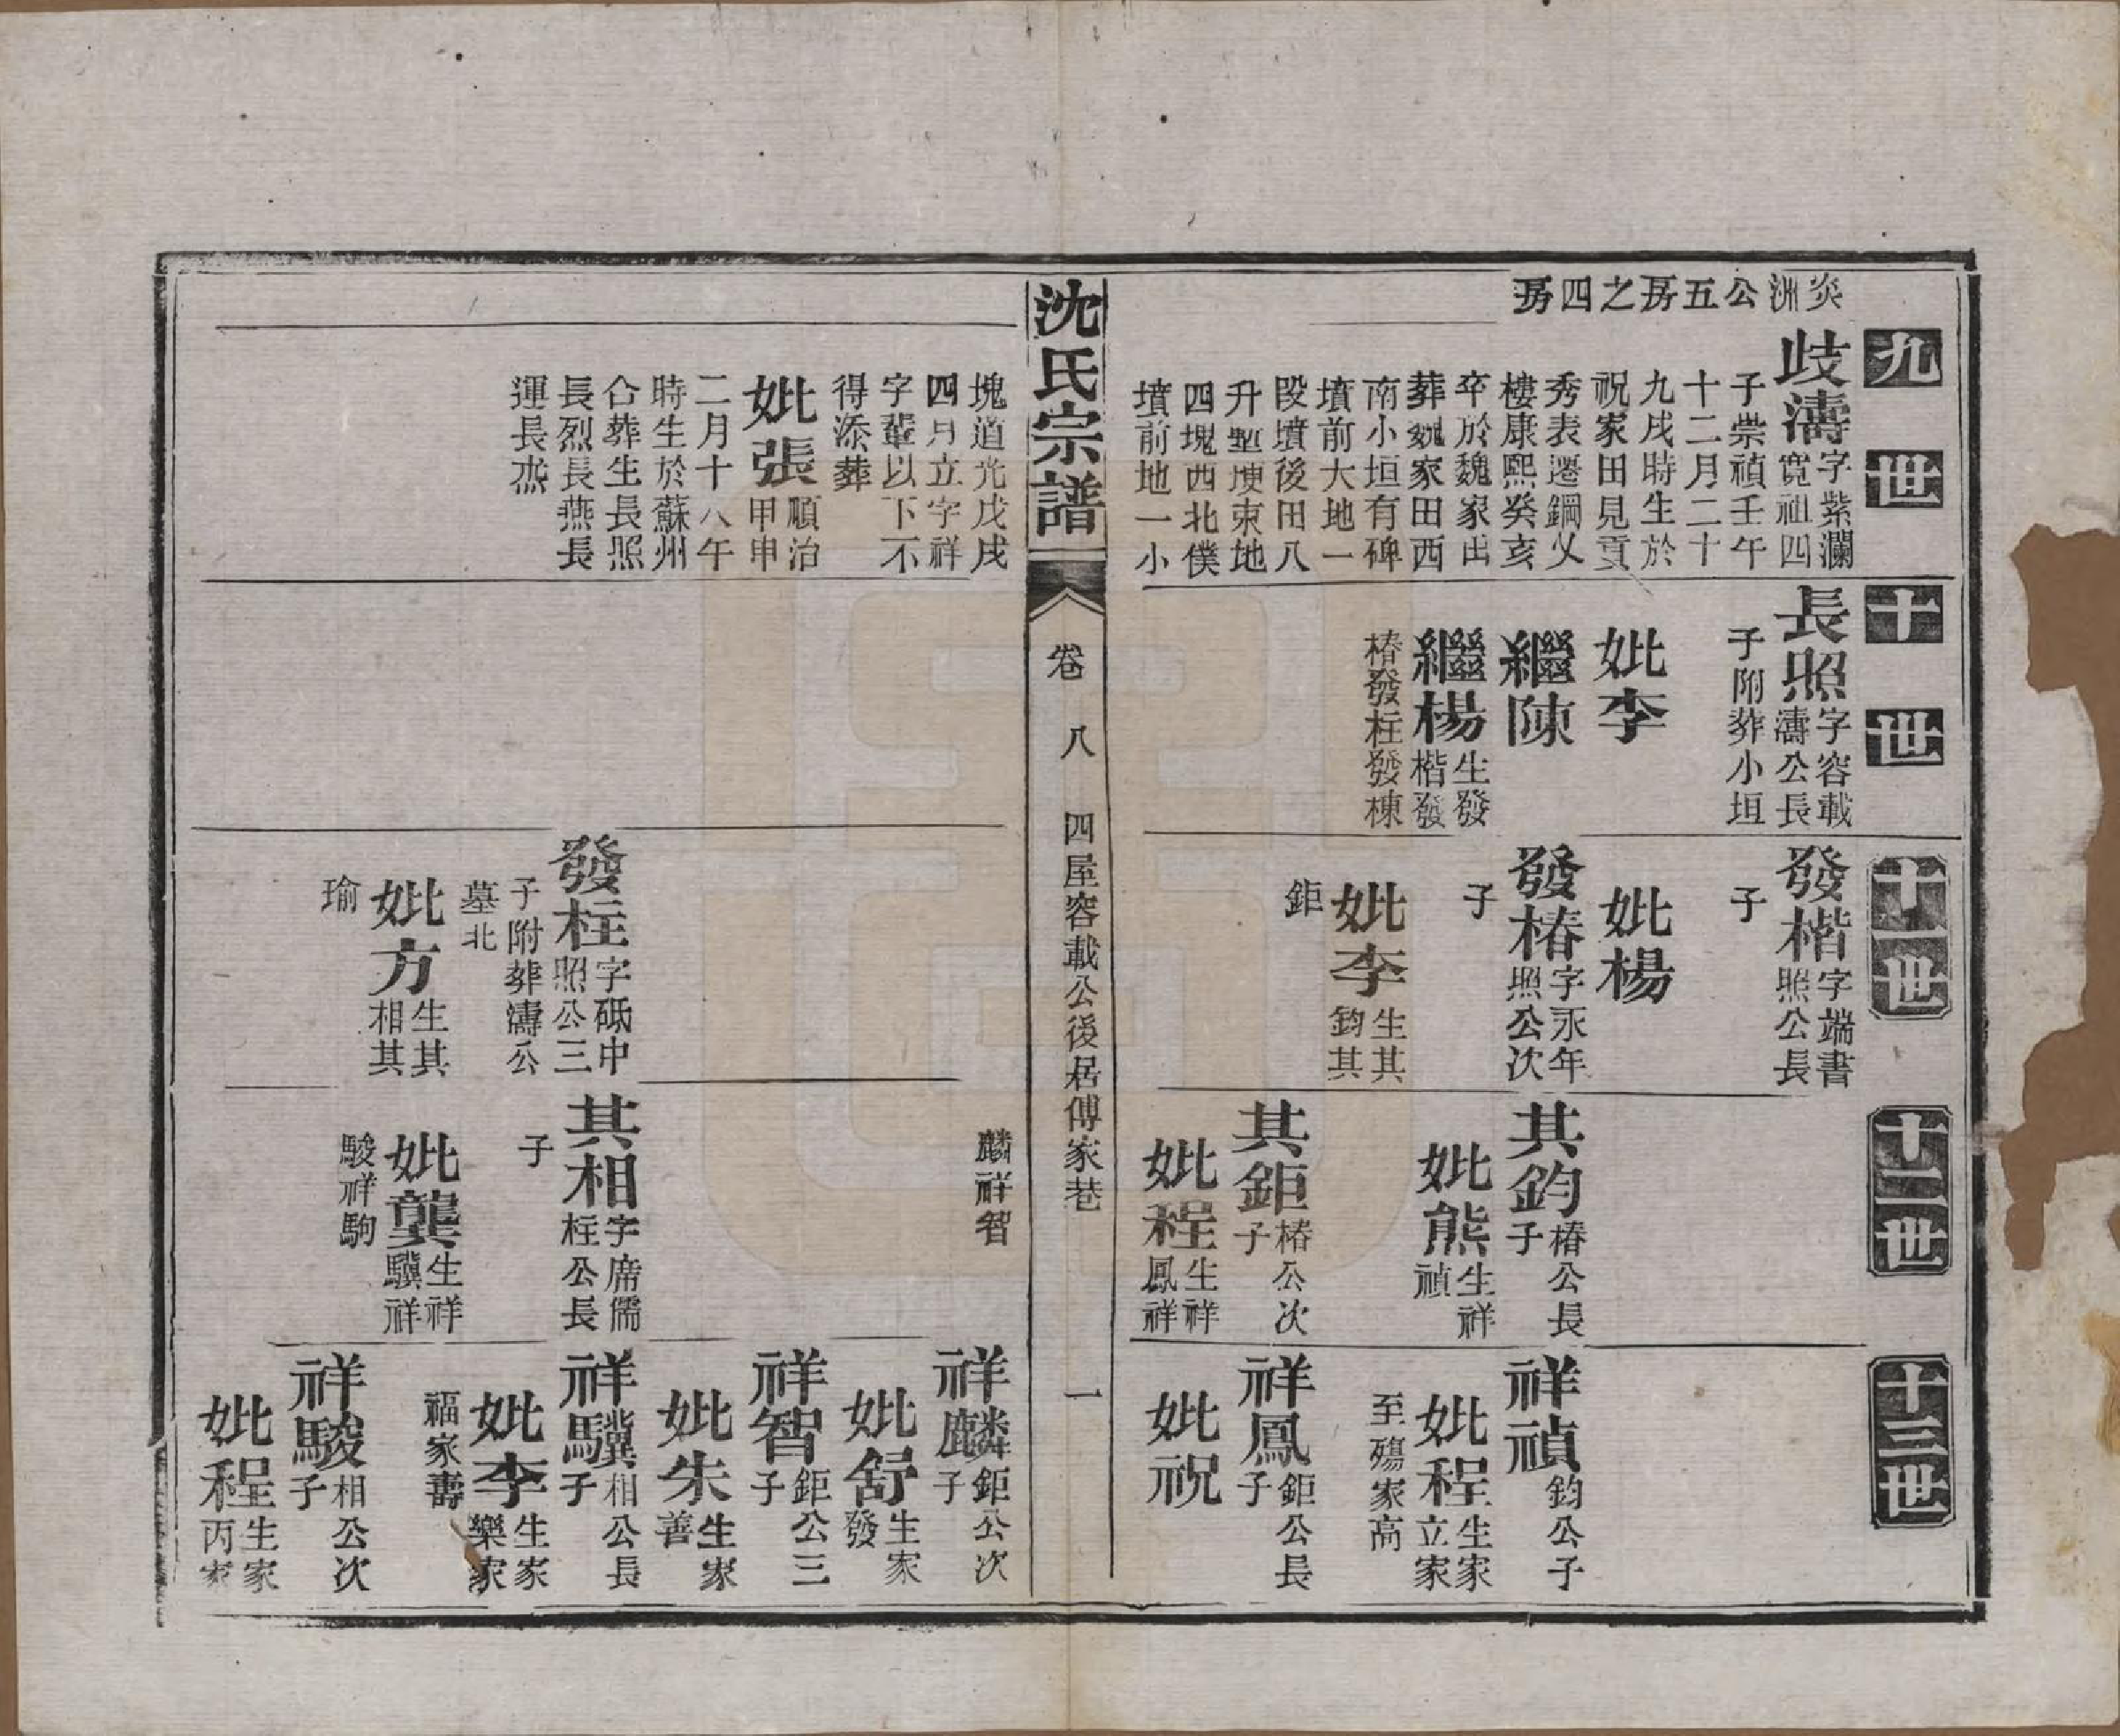 炎洲公五房之四房
九世
歧濤
字紫瀾
寬祖四
子崇禎壬午
十二月二十
九戌時生於
祝家田見貢
秀表遷鋼乂
樓康熙癸亥
卒於魏家出
葬魏家田西
南小垣有碑
墳前大地一
段墳後田八
升塹塽東地
四塊西北僕
墳前地一小
塊道光戊戌
四月立字祥
字輩以下不
得添葬
妣張
順治
甲申
二月十八午
時生於蘇州
合葬生長照
長烈長燕長
運長烝
十世
長照
字容載
濤公長
子附葬小垣
妣李
繼陳
繼楊
生發
楷發
椿發柱發棟
十一世
發楷
字端書
照公長
子
妣楊
發椿
字永年
照公次
子
妣李
生其
鈞其
鉅
發柱
字砥中
照公三
子附葬濤公
墓北
妣方
生其
相其
瑜
十二世
其鈞
椿公長
子
妣熊
生祥
禎
其鉅
椿公次
子
妣程
生祥
鳳祥
麟祥智
其相
字席儒
柱公長
子
妣龔
生祥
驥祥
駿祥駒
十三世
祥禎
鈞公子
妣程
生家
立家
至殤家高
祥鳳
鉅公長
子
妣祝
祥麟
鉅公次
子
妣舒
生家
發
祥智
鉅公三
子
妣朱
生家
善
祥驥
相公長
子
妣李
生家
樂家
福家壽
祥駿
相公次
子
妣程
生家
丙家
沈氏宗譜
卷八
四屋容載公後居傅家巷
一